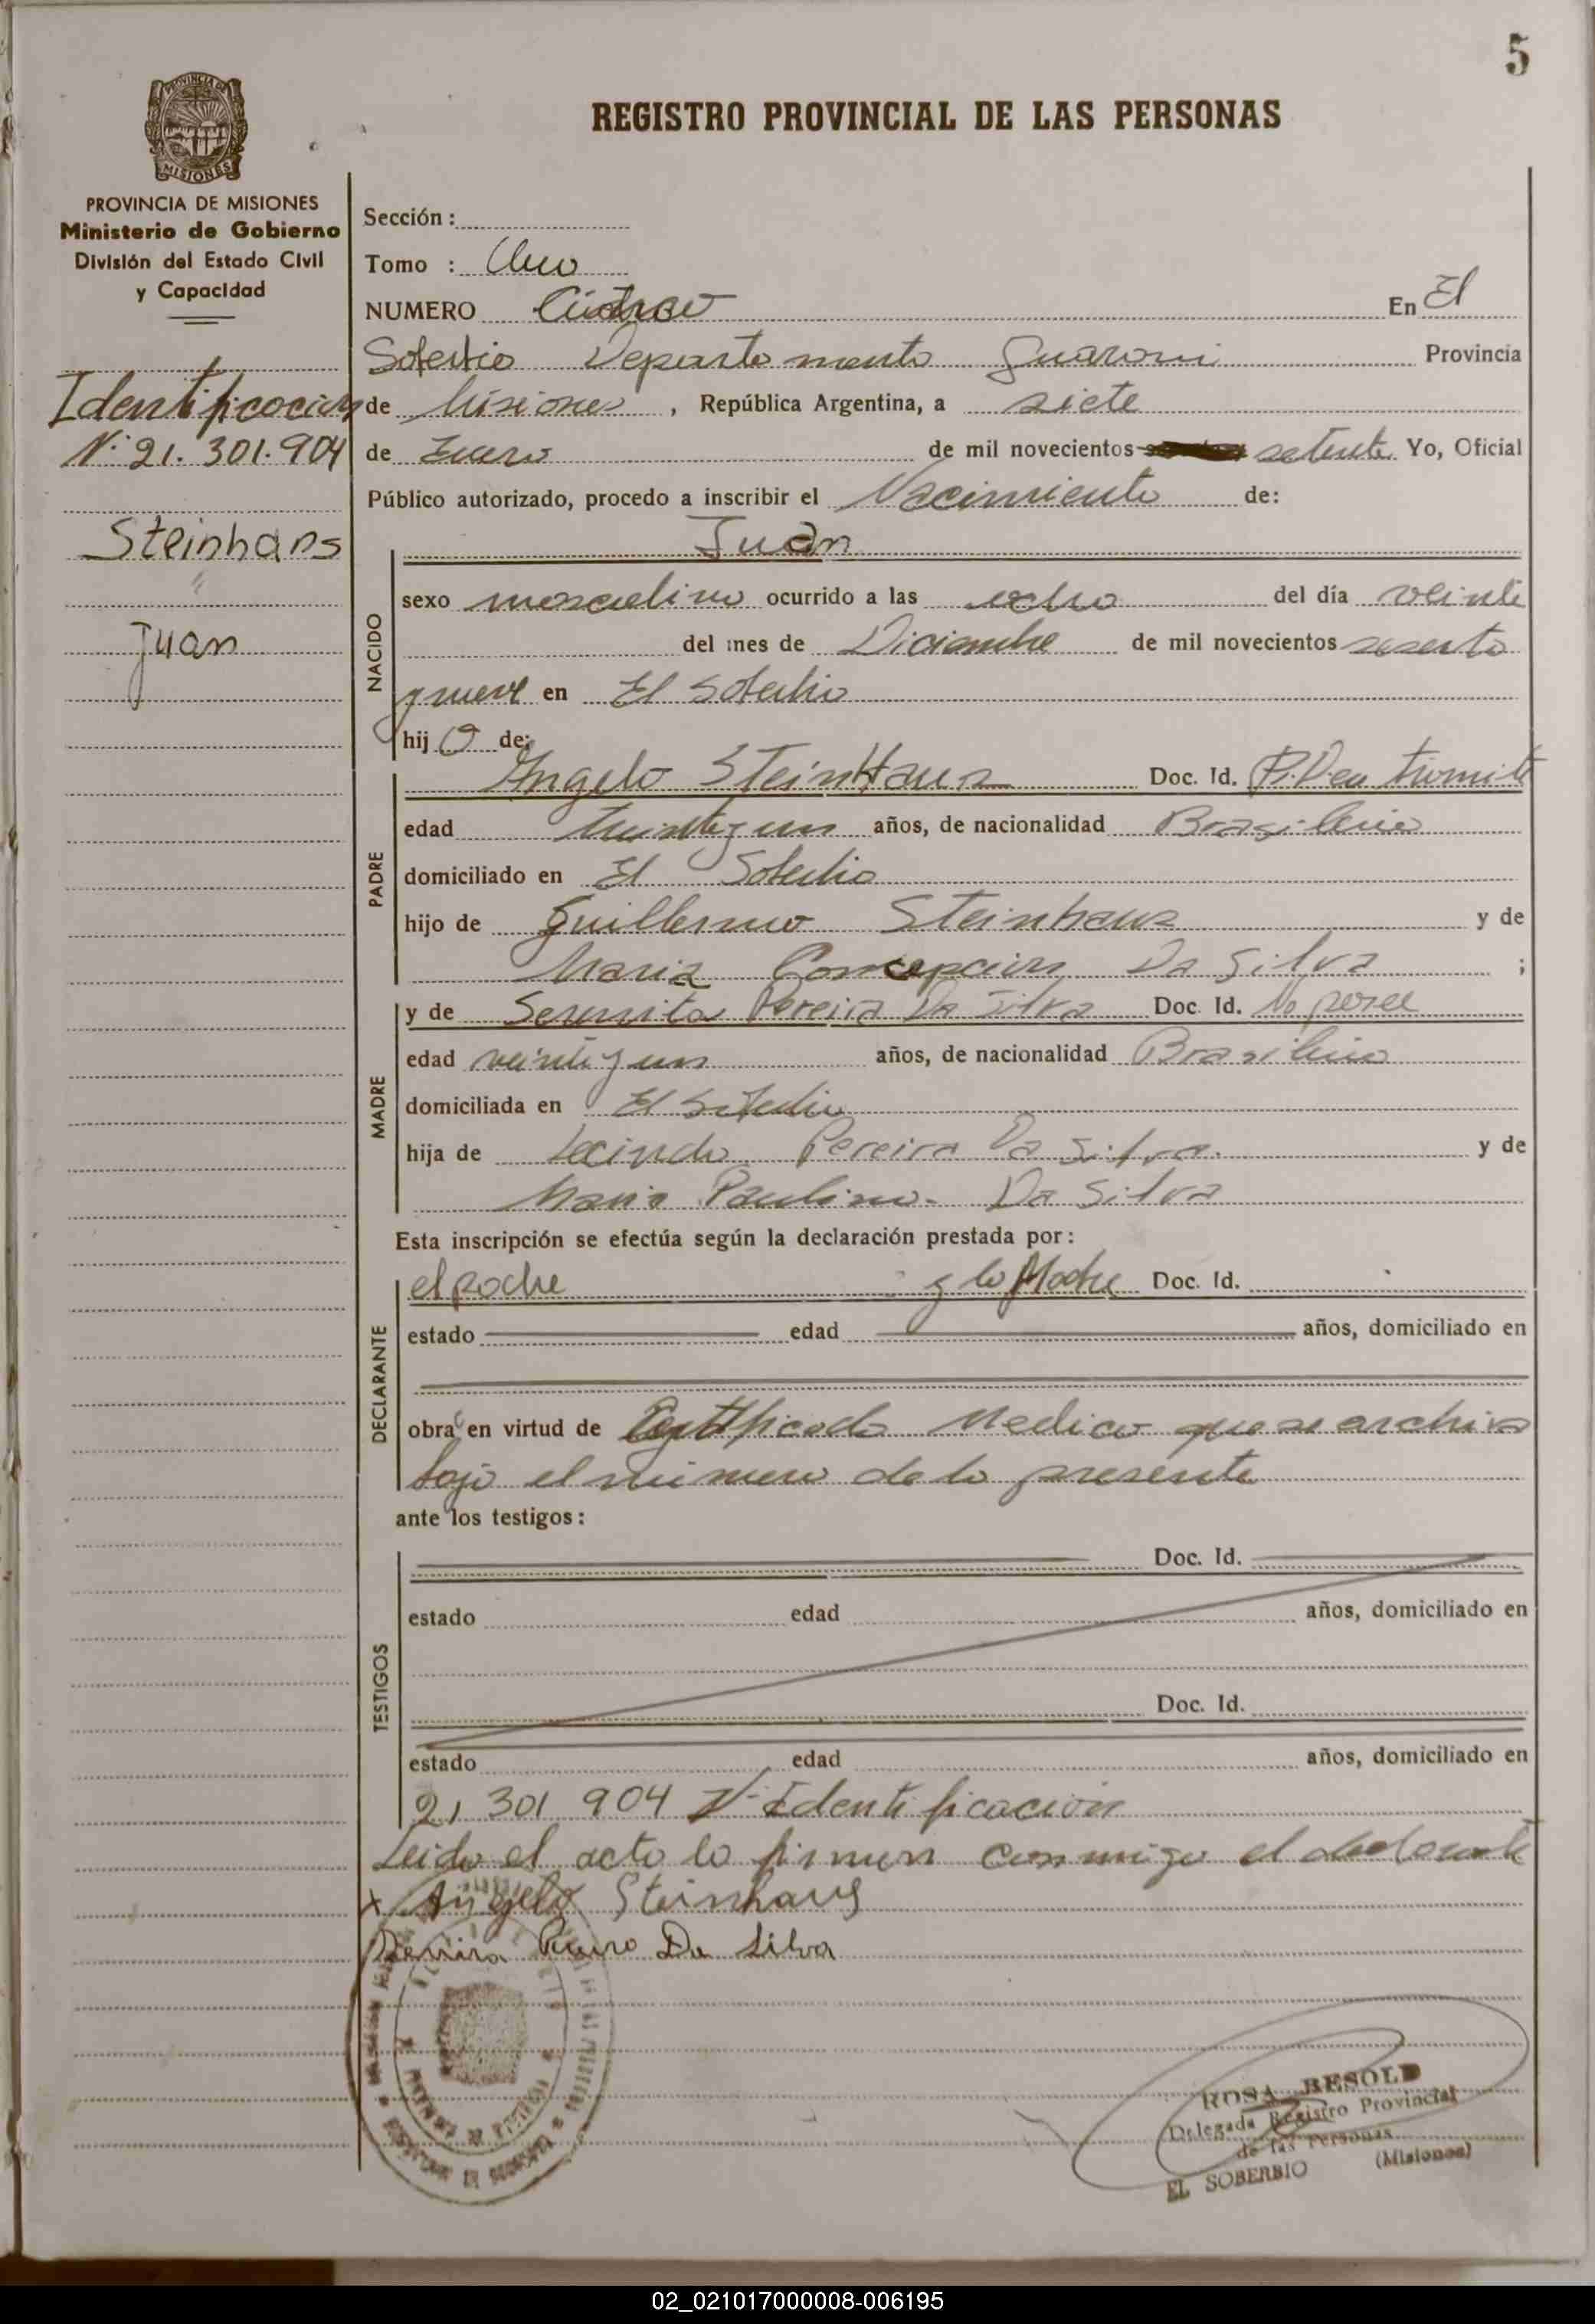 5
REGISTRO PROVINCIAL DE LAS PERSONAS
PROVINCIA DE
MISIONES
PROVINCIA DE MISIONES
Ministerio de Gobierno
División del Estado Civil
y Capacidad
Identificocion
Nº 21.301.904
Steinhans
"
Juan
Sección :
Tomo : Uno
NUMERO Cuatro En El
Soberbio Departamento Guarani Provincia
de Misiones , República Argentina, a siete
de Enero de mil novecientos setenta Yo, Oficial
Público autorizado, procedo a inscribir el Nacimiento de:
NACIDO
Juan
sexo masculino ocurrido a las ocho del día veinte
del mes de Diciembre de mil novecientos sesenta
y nueve en El Soberbio
hij o de:
PADRE
Angelo SteinHaus Doc. Id. en tramite
edad treinta y un años, de nacionalidad Brasilera
domiciliado en El Soberbio
hijo de Guillermo Steinhaus y de
Maria Concepcion Da Silva ;
MADRE
y de Pereira Da Silva Doc. Id. No posee
edad veinte y un años, de nacionalidad Brasilera
domiciliada en El Soberbio
hija de Pereira Da Silva. y de
Maria Paulina Da Silva
Esta inscripción se efectúa según la declaración prestada por :
DECLARANTE
el padre y la Madre Doc. Id.
estado edad años, domiciliado en
obra en virtud de Certificado Medico que se archiva
bajo el numero de la presente
ante los testigos :
TESTIGOS
Doc. Id.
estado edad años, domiciliado en
Doc. Id.
estado edad años, domiciliado en
21 301 904 Nº Identificacion
Leida el acta la firman conmigo el declarante
x Angelo Steinhaus
Da Silva
ROSA RESOLD
Delegada Registro Provincial
de las Personas
EL SOBERBIO (Misiones)
02_021017000008-006195